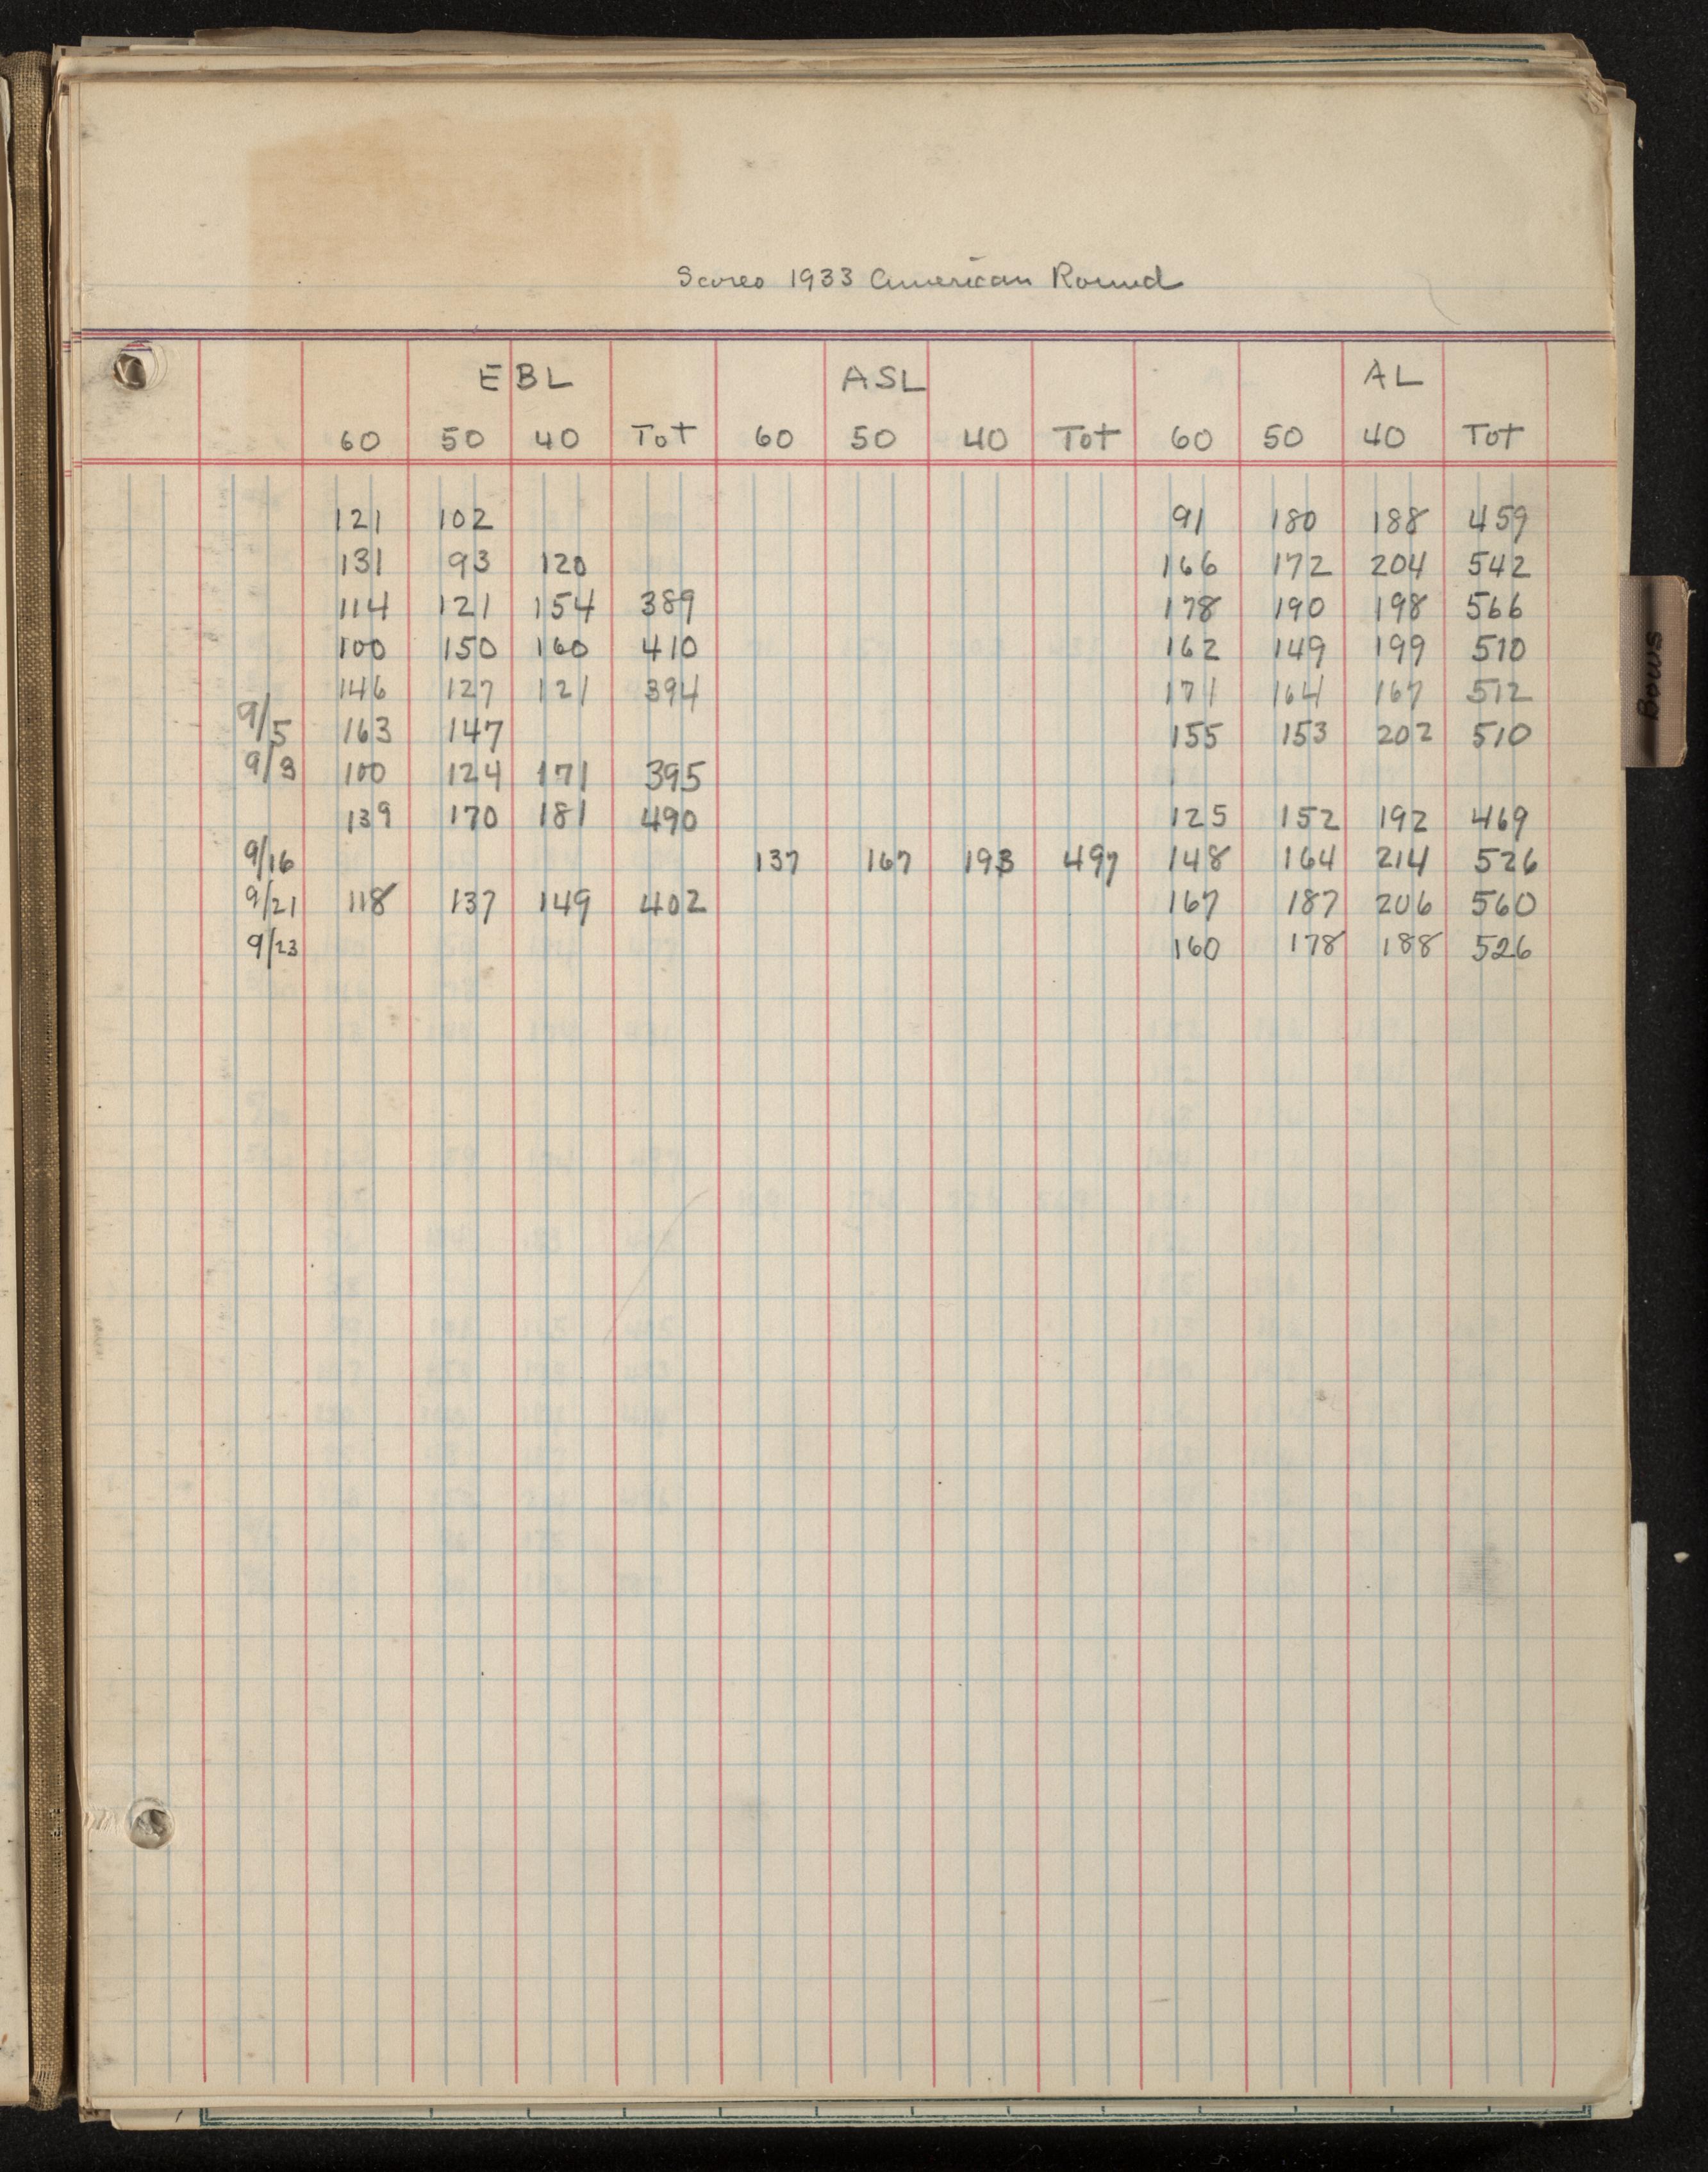 Scores 1933 American Round
EBL ASL AL
60 50 40 Tot 60 50 40 Tot 60 50 40 Tot
121 102 91 180 188 459
131 93 120 166 172 204 542
114 121 154 389 178 190 198 566
100 150 160 410 162 149 199 510
146 127 121 394 171 164 167 512
9/5 163 147 155 153 202 510
9/9 100 124 171 395
139 170 181 490 125 152 192 469
9/16 137 167 193 497 148 164 214 526
9/21 118 137 149 402 167 187 206 560
9/23 160 178 188 526
Bows